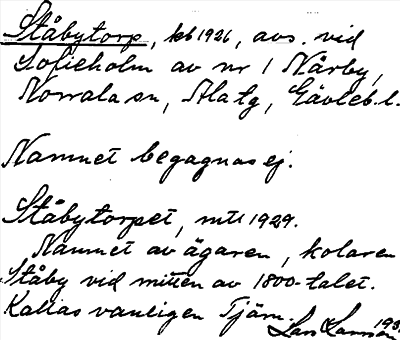 Ståbytorp, kb 1926, avs. vid
Sofieholm av nr 1 Närby,
Norrala sn, Ala tg, Gävleb. l.
Namnet begagnas ej.
Ståbytorpet, mtl 1929.
Namnet av ägaren, kolaren
Ståby vid mitten av 1800-talet.
Kallas vanligen Tjärn.
Lars